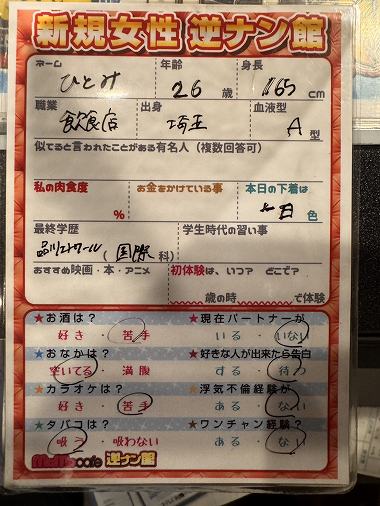 新規女性 逆ナン館
ネーム 年齢 身長
ひとみ 26歳 165cm
職業 出身 血液型
飲食店 埼玉 A型
似てると言われたことがある有名人（複数回答可）
私の肉食度 お金をかけている事 本日の下着は
% 色
最終学歴 学生時代の習い事
品川エトワール（国際科）
おすすめ映画・本・アニメ 初体験は、いつ？ どこで？
歳の時 で体験
★お酒は？ ★現在パートナーが
好き・苦手 いる・いない
★おなかは？ ★好きな人が出来たら告白
空いてる・満腹 する・待つ
★カラオケは？ ★浮気不倫経験が
好き・苦手 ある・ない
★タバコは？ ★ワンチャン経験？
吸う・吸わない ある・ない
cafe 逆ナン館